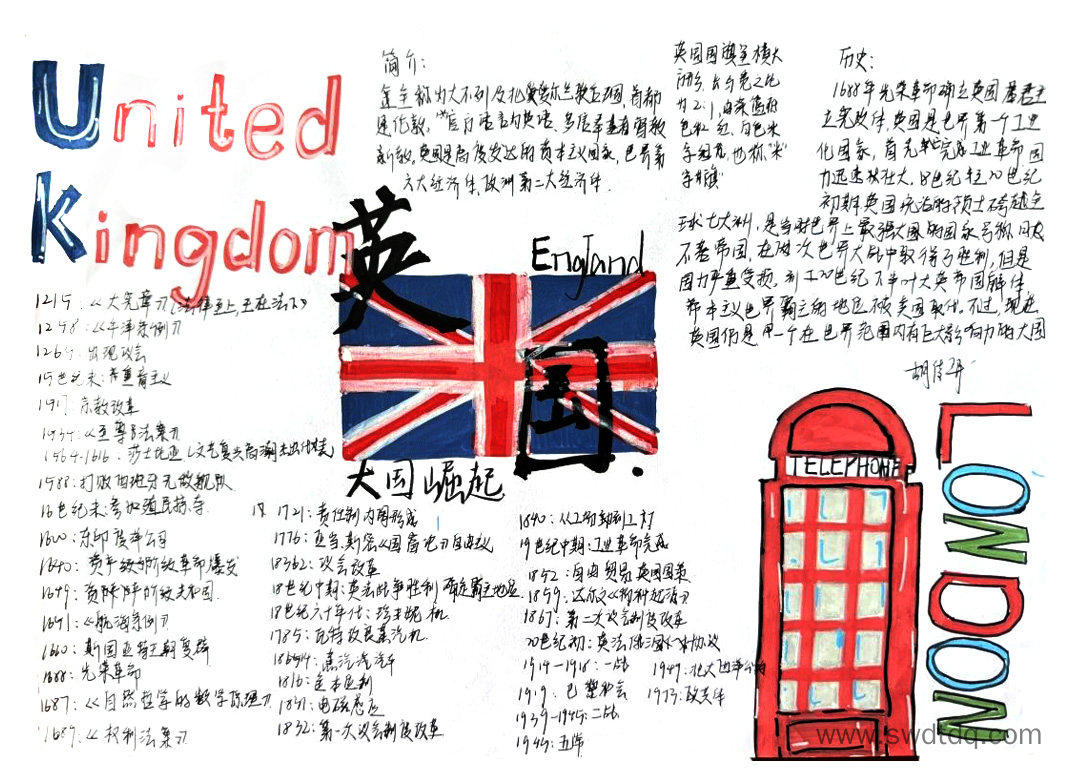 United
Kingdom
简介:
全称为大不列及北爱尔兰联合王国,首都
是伦敦,官方语言为英语,多信奉基督教
新教,英国是高度发达的资本主义国家,世界第
六大经济体,欧洲第二大经济体.
英国国旗呈横大
方形,长与宽之比
为2:1,由深蓝底
色和红、白色米
字组成,也称"米"
字旗
历史:
1688年光荣革命确立英国君主
立宪政体,英国是世界第一个工业
化国家,首先完成工业革命国
力迅速壮大,18世纪至20世纪
初期英国统治的领土跨越全
球七大洲,是当时世界上最强大的国家号称日
不落帝国,在两次世界大战中取得了胜利,但是
国力严重受损,到了20世纪下半叶大英帝国解体
资本主义世界霸主的地位被美国取代,不过,现在
英国仍是一个在世界范围内有巨大影响力的大国
英
国
England
大国崛起
1215:《大宪章》(法律至上,王在法下)
1258:《牛津条例》
1265:出现议会
15世纪末:君主主义
宗教改革
1534:《至尊法案》
1564-1616:莎士比亚(文艺复兴高潮杰出代表
1588:打败西班牙无敌舰队
16世纪末:参加殖民掠夺
1600:东印度公司
1640:资产级阶级革命爆发
1649:
1651:《航海条例》
1660:斯图亚特王朝复辟
1688:光荣革命
1687:《自然哲学的数学原理》
1689:《权利法案》
1721:责任制内阁形成
1776:亚当.斯密《国富论》自由主义
议会改革
18世纪中期:英法战争胜利 确定霸主地位
18世纪六十年代:珍妮机
1785:瓦特改良蒸汽机
蒸汽汽车
1831:电磁感应
1832:第一次议会制度改革
1840:
19世纪中期:工业革命完成
1852:自由贸易英国国策
1859:达尔文《物种起源》
1867:第二次议会制度改革
20世纪初:英法 协议
1914-1918:一战
1919:巴黎和会
1939-1945:二战
1945:五常
1949:北大西洋公约
1973:欧共体
TELEPHONE
LONDON
www.swdtdq.com